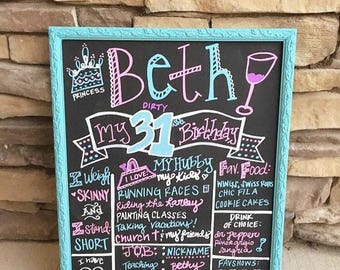 Beth
PRINCESS
DIRTY
My 31st Birthday
I Weigh
SKINNY
AND
I Stand
SHORT
I have
I LOVE
MY HUBBY
my kids
RUNNING RACES
Riding the harley
PAINTING CLASSES
Taking vacations!
church + my friends
JOB:
Teaching
NICKNAME
bethy
FAV. FOOD:
WINGS, SWISS ROLLS
CHIC FIL A
COOKIE CAKES
DRINK OF
CHOICE:
dr pepper
pinot grigio
sangria
?
FAV SHOWS: